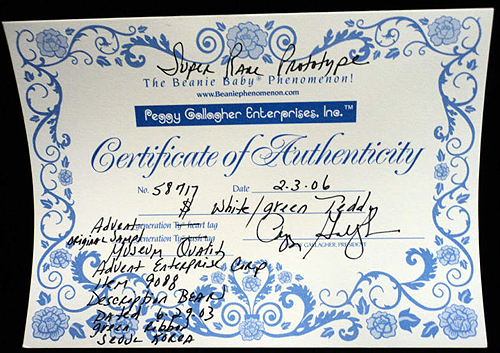 Super Rare Prototype
The Beanie Baby® Phenomenon!
www.Beaniephenomenon.com
Peggy Gallagher Enterprises, Inc.™
Certificate of Authenticity
No. 58717 Date 2.3.06
$ White/green Teddy
Advent generation heart tag
original sample generation tush tag
Museum Quality GALLAGHER, PRESIDENT
Advent Enterprise Corp
Item 9088
Description Bear
Dated 6-29-03
green Ribbon
Seoul Korea